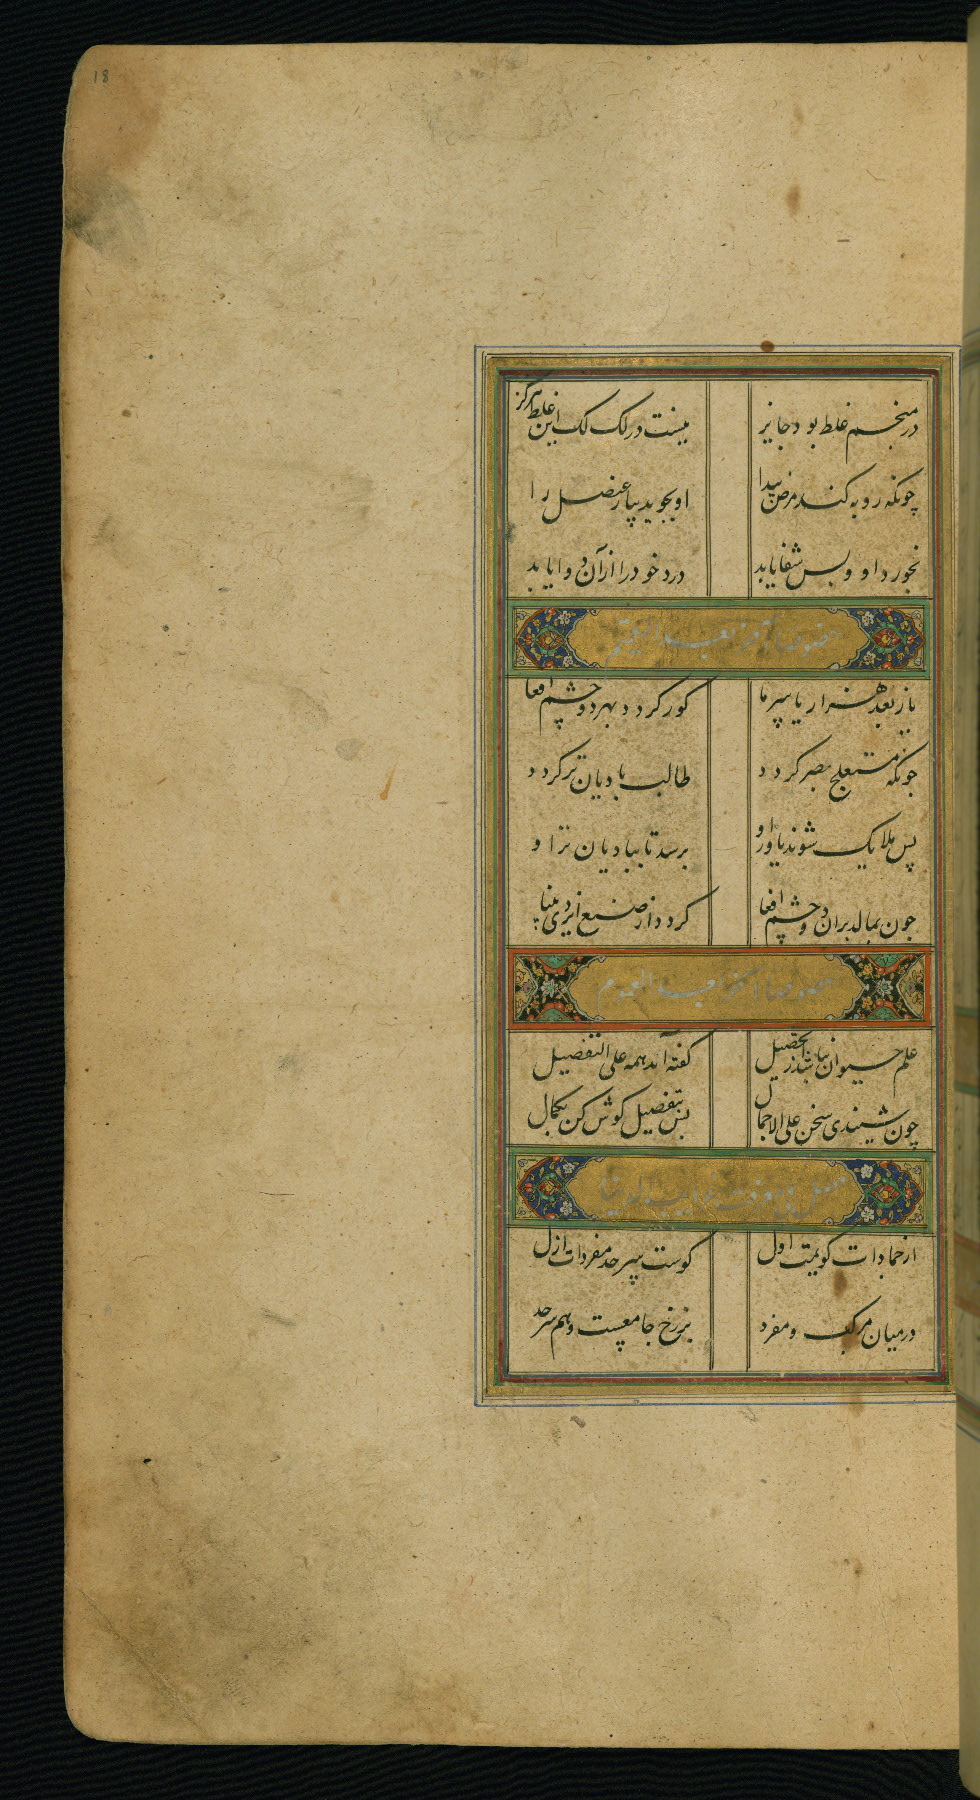 18
در منجم غلط بود جایز نیست در لک لک این غلط هرگز
چونکه روبه کند مرض پیدا او بجوید پیاز عنصل را
نخورد او و بس شفا یابد درد خود را از آن دوا یابد
باز بعد هزار یا سپر ما کور کردد بهر دو چشم افعا
چونکه مستعلج بصر کردد طالب بادیان تر کردد
پس ملایک شوند یاور او برسد تا ببادیان تر او
چون بمالد بران دو چشم افعا کردد از صنع ایزدی بینا
علم حیوان نباشد از تحصیل کفته آند همه علی التفصیل
چون شنیدی سخن علی الاجمال پس بتفصیل کوش کن بکمال
از جمادات کویمت اول کوست سر حد مفردات ازل
در میان مرکب و مفرد برزخ جامعست و هم سرحد